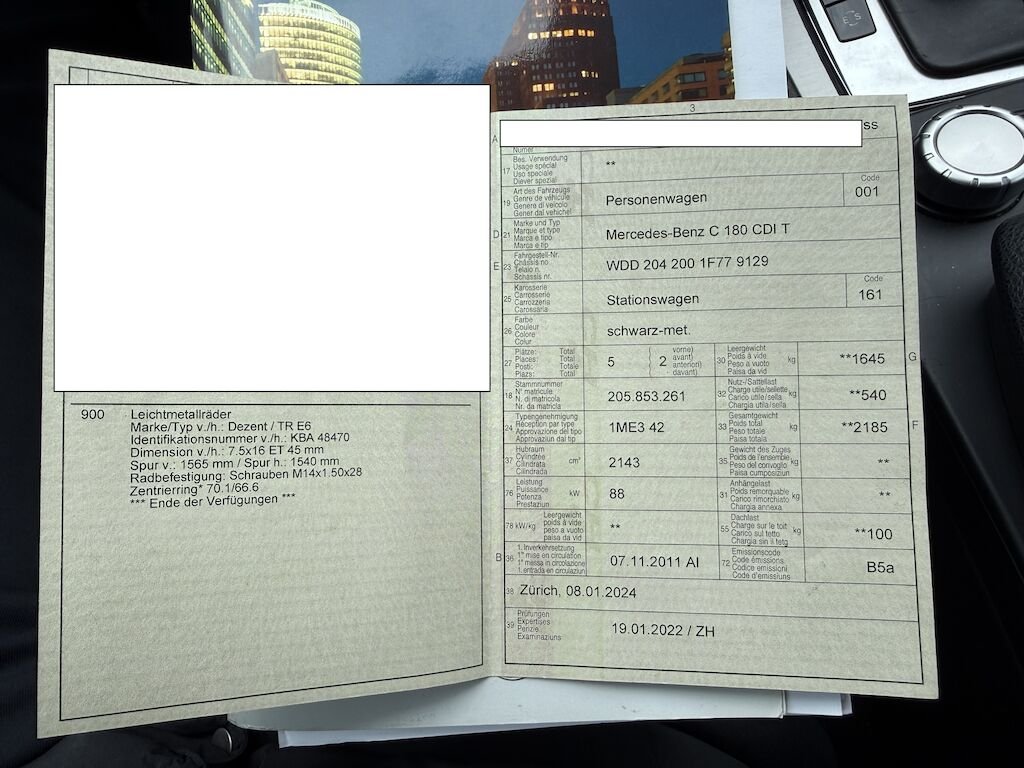 E S
900 Leichtmetallräder
Marke/Typ v./h.: Dezent / TR E6
Identifikationsnummer v./h.: KBA 48470
Dimension v./h.: 7.5x16 ET 45 mm
Spur v.: 1565 mm / Spur h.: 1540 mm
Radbefestigung: Schrauben M14x1.50x28
Zentrierring* 70.1/66.6
*** Ende der Verfügungen ***
3
A ss
Numer
17 Bes. Verwendung
Usage spécial
Uso speciale
Diever spezial
**
19 Art des Fahrzeugs
Genre de véhicule
Genere di veicolo
Gener dal vehichel
Personenwagen
Code
001
D 21 Marke und Typ
Marque et type
Marca e tipo
Marca e tip
Mercedes-Benz C 180 CDI T
E 23 Fahrgestell-Nr.
Châssis no
Telaio n.
Schassis nr.
WDD 204 200 1F77 9129
25 Karosserie
Carrosserie
Carrozzeria
Carossaria
Stationswagen
Code
161
26 Farbe
Couleur
Colore
Colur
schwarz-met.
27 Plätze: Total
Places: Total
Posti: Totale
Plazs: Total
5 2 vorne)
avant)
anteriori)
davant)
30 Leergewicht
Poids à vide
Peso a vuoto
Paisa da vid
kg
**1645
G
18 Stammnummer
N° matricule
N. di matricola
Nr. da matricla
205.853.261
32 Nutz-/Sattellast
Charge utile/sellette
Carico utile/sella
Chargia utila/sella
kg
**540
24 Typengenehmigung
Réception par type
Approvazione del tipo
Approvaziun dal tip
1ME3 42
33 Gesamtgewicht
Poids total
Peso totale
Paisa totala
kg
**2185
F
37 Hubraum
Cylindrée
Cilindrata
Cilindrada
cm³
2143
35 Gewicht des Zuges
Poids de l'ensemble
Peso del convoglio
Paisa cumposiziun
kg
**
76 Leistung
Puissance
Potenza
Prestaziun
kW
88
31 Anhängelast
Poids remorquable
Carico rimorchiato
Chargia annexa
kg
**
78 kW/kg Leergewicht
poids à vide
peso a vuoto
paisa da vid
**
55 Dachlast
Charge sur le toit
Carico sul tetto
Chargia sin il tetg
kg
**100
B 36 1. Inverkehrsetzung
1re mise en circulation
1a messa in circolazione
1. entrada en circulaziun
07.11.2011 AI
72 Emissionscode
Code émissions
Codice emissioni
Code d'emissiuns
B5a
38 Zürich, 08.01.2024
39 Prüfungen
Expertises
Perizie
Examinaziuns
19.01.2022 / ZH